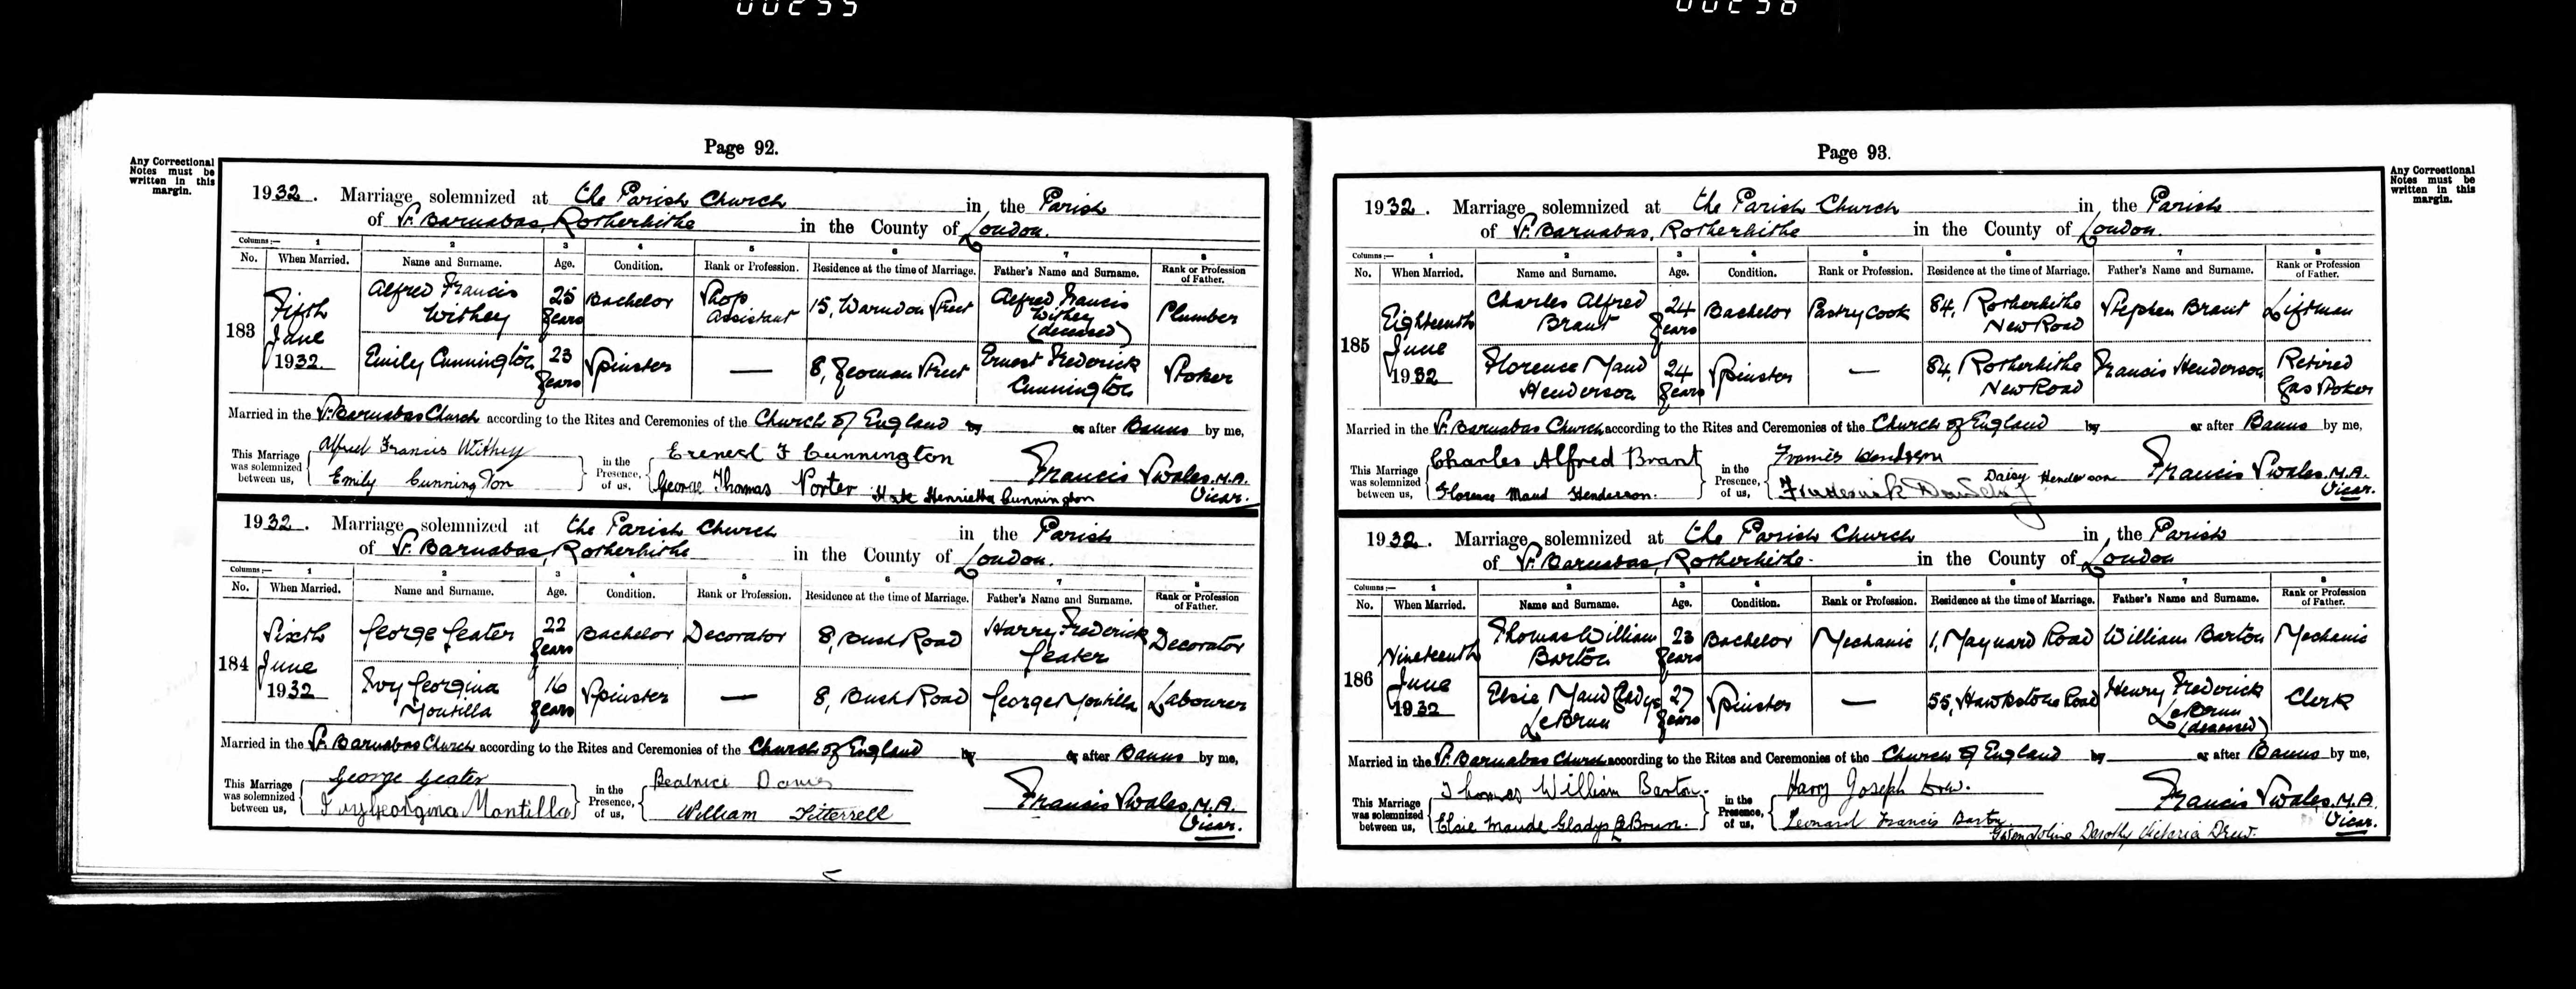 Page 92.
Any Correctional
Notes must be
written in this
margin.
1932. Marriage solemnized at the Parish Church in the Parish
of St. Barnabas, Rotherhithe in the County of London.
Columns:— 1 2 3 4 5 6 7 8
No. When Married. Name and Surname. Age. Condition. Rank or Profession. Residence at the time of Marriage. Father's Name and Surname. Rank or Profession of Father.
183 Fifth June 1932. Alfred Francis Withey 25 years Bachelor Shop Assistant 15, Warndon Street Alfred Francis Withey (deceased) Plumber
Emily Cunnington 23 years Spinster — 8, Yeoman Street Ernest Frederick Cunnington Stoker
Married in the St. Barnabas Church according to the Rites and Ceremonies of the Church of England by or after Banns by me,
This Marriage was solemnized between us, Alfred Francis Withey
Emily Cunnington
in the Presence of us, Ernest F Cunnington
George Thomas Porter Kate Henrietta Cunnington
Francis Swales. M.A.
Vicar.
1932. Marriage solemnized at the Parish Church in the Parish
of St. Barnabas, Rotherhithe in the County of London.
Columns:— 1 2 3 4 5 6 7 8
No. When Married. Name and Surname. Age. Condition. Rank or Profession. Residence at the time of Marriage. Father's Name and Surname. Rank or Profession of Father.
184 Sixth June 1932 George Geater 22 years Bachelor Decorator 8, Bush Road Harry Frederick Geater Decorator
Ivy Georgina Montilla 16 years Spinster — 8, Bush Road George Montilla Labourer
Married in the St. Barnabas Church according to the Rites and Ceremonies of the Church of England by or after Banns by me,
This Marriage was solemnized between us, George Geater
Ivy Georgina Montilla
in the Presence, of us, Beatrice Davies
William Titterrell
Francis Swales. M.A.
Vicar.
Page 93.
Any Correctional
Notes must be
written in this
margin.
1932. Marriage solemnized at the Parish Church in the Parish
of St. Barnabas, Rotherhithe in the County of London.
Columns:— 1 2 3 4 5 6 7 8
No. When Married. Name and Surname. Age. Condition. Rank or Profession. Residence at the time of Marriage. Father's Name and Surname. Rank or Profession of Father.
185 Eighteenth June 1932 Charles Alfred Brant 24 years Bachelor Pastry Cook 84, Rotherhithe New Road Stephen Brant Liftman
Florence Maud Henderson 24 years Spinster — 84, Rotherhithe New Road Francis Henderson Retired Gas Stoker
Married in the St. Barnabas Church according to the Rites and Ceremonies of the Church of England by or after Banns by me,
This Marriage was solemnized between us, Charles Alfred Brant
Florence Maud Henderson.
in the Presence, of us, Francis Henderson
Daisy Henderson
Frederick
Francis Swales. M.A.
Vicar.
1932. Marriage solemnized at the Parish Church in the Parish
of St. Barnabas, Rotherhithe. in the County of London
Columns:— 1 2 3 4 5 6 7 8
No. When Married. Name and Surname. Age. Condition. Rank or Profession. Residence at the time of Marriage. Father's Name and Surname. Rank or Profession of Father.
186 Nineteenth June 1932 Thomas William Barton 23 years Bachelor Mechanic 1, Maynard Road William Barton Mechanic
Elsie Maud Gladys LeBrun 27 years Spinster — 55, Hawkstone Road Henry Frederick LeBrun (deceased) Clerk
Married in the St. Barnabas Church according to the Rites and Ceremonies of the Church of England by or after Banns by me,
This Marriage was solemnized between us, Thomas William Barton.
Elsie Maude Gladys LeBrun.
in the Presence, of us, Harry Joseph
Leonard Francis Barton
Gwendoline Dorothy Victoria Drew.
Francis Swales. M.A.
Vicar.